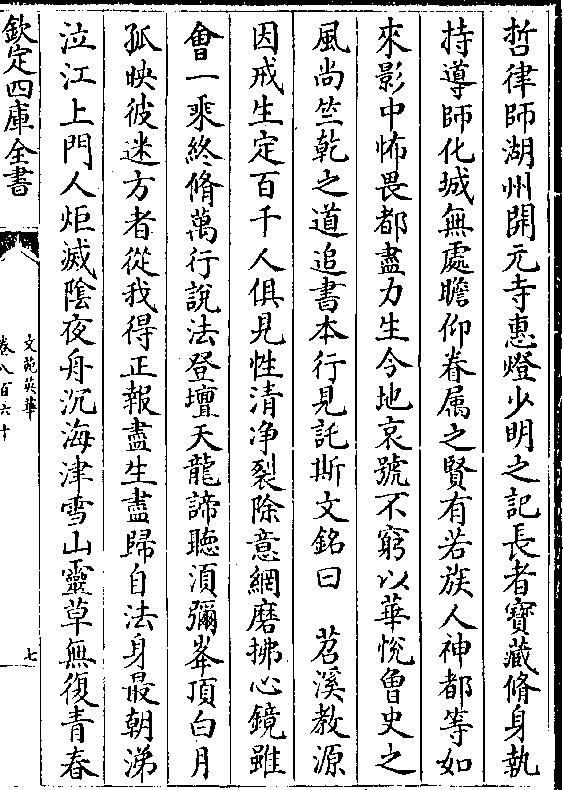 哲律師湖州開元寺惠燈少明之記長者寶藏脩身執
持導師化城無處瞻仰眷属之賢有若族人神都等如
來影中怖畏都盡力生今地哀號不窮以華悅魯史之
風尚竺乾之道追書本行見託斯文銘曰　苕溪教源
因戒生定百千人俱見性清净裂除意網磨拂心鏡雖
會一乘終脩萬行說法登壇天龍諦聽湏彌峯頂白月
孤映彼迷方者從我得正報盡生盡歸自法身最朝涕
泣江上門人炬滅陰夜舟沉海津雪山靈草無復青春
欽定四庫全書
文苑英華
卷八百六十
七